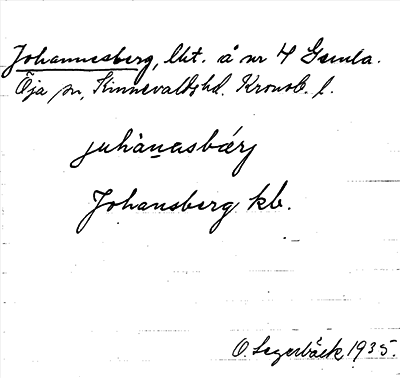 Johannesberg, lht. å nr 4 Gemla.
Öja sn, Kinnevalds hd. Kronob. l.
juhànasbárj
Johansberg kb.
O. Segerbäck 1935.